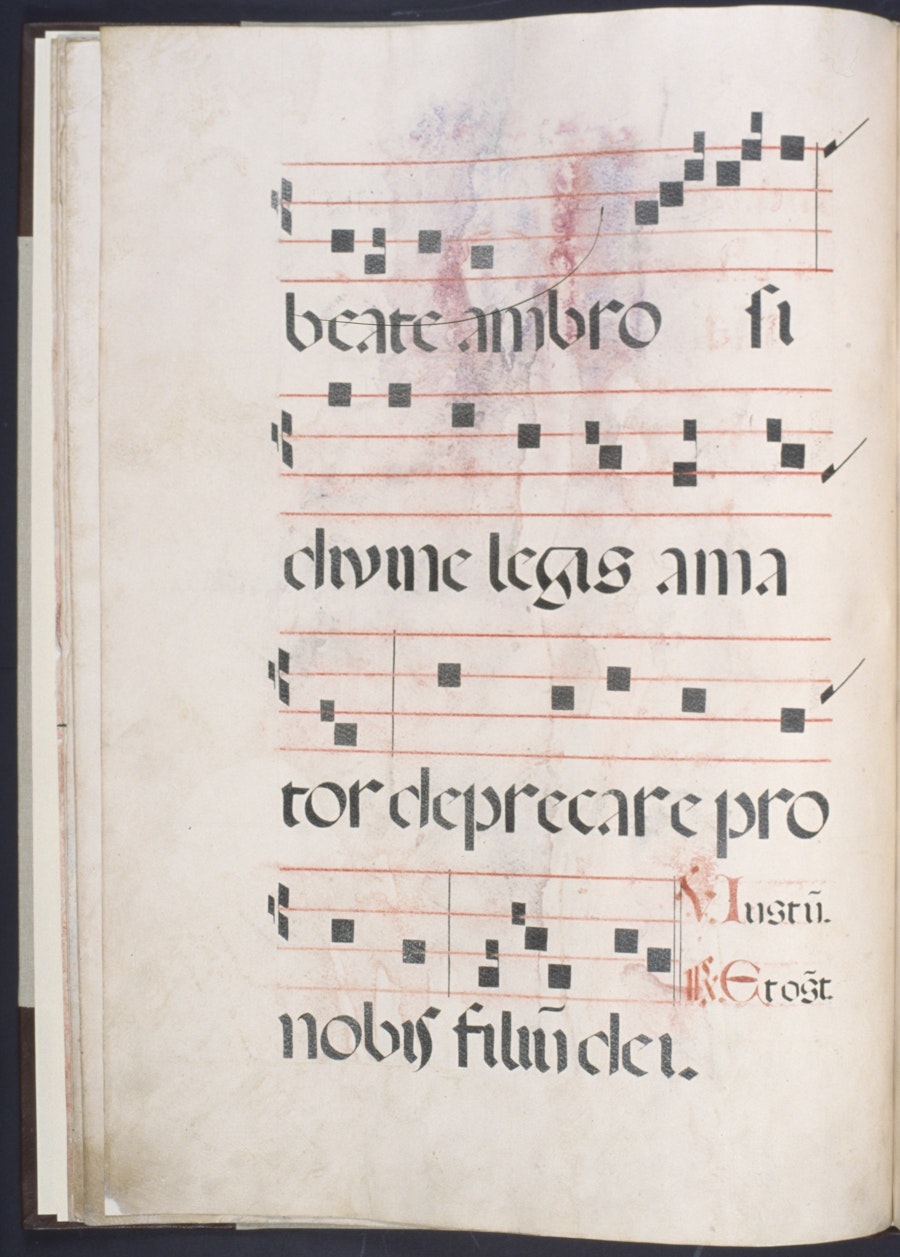 beate ambro si
divine legis ama
tor deprecare pro
nobis filiū dei.
V. Iustū.
R. Et oſt̄.